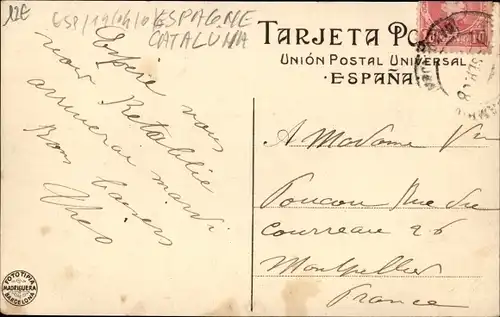 12€
ESPAGNE
CATALUNA
TARJETA PO
UNIÓN POSTAL UNIVERSAL
ESPAÑA
Espère vous
vous Retablie
arriverai mardi
Bons baisers
Yves
A Madame Vve
Poucou Rue du
Courreau 26
Montpellier
France
FOTOTIPIA
MADRIGUERA
BARCELONA